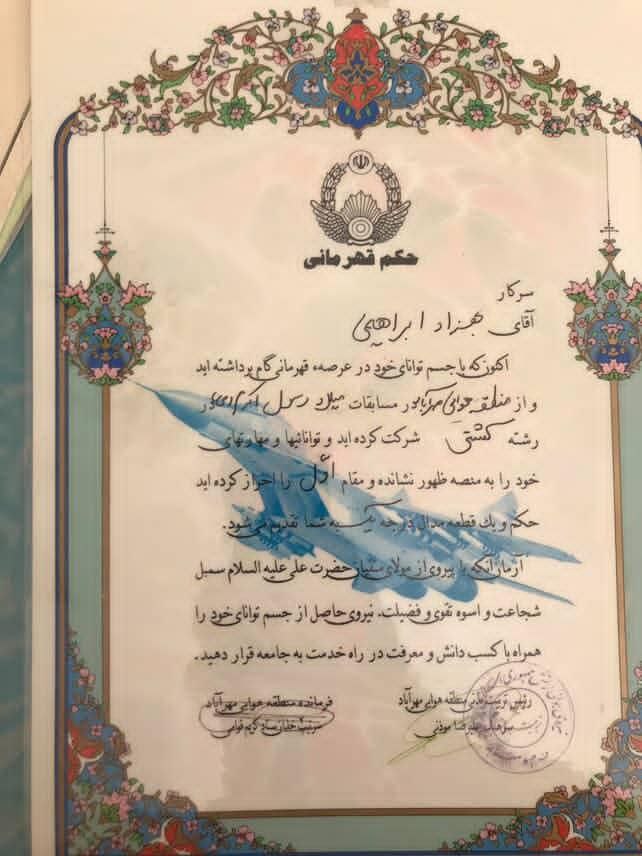 حکم قهرمانی
سرکار
آقای بهزاد ابراهیمی
اکنون که با جسم توانای خود در عرصهٔ قهرمانی گام برداشته اید
و از منطقه هوایی مهرآباد در مسابقات میلاد رسول اکرم در
رشته کشتی شرکت کرده اید و توانائیها و مهارتهای
خود را به منصه ظهور نشانده و مقام اوّل را احراز کرده اید
حکم و یك قطعه مدال درجه یک به شما تقدیم می شود.
آرمان آنکه با پیروی از مولای متقیان حضرت علی علیه السلام سمبل
شجاعت و اسوه تقوی و فضیلت، نیروی حاصل از جسم توانای خود را
همراه با کسب دانش و معرفت در راه خدمت به جامعه قرار دهید.
رئیس تربیت بدنی منطقه هوایی مهرآباد
سرهنگ علیرضا موذنی
فرمانده منطقه هوایی مهرآباد
سرتیپ خلبان ستاد کریم قوامی